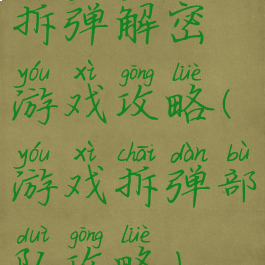 拆弹解密
yóu xì gōng lüè
游戏攻略(
yóu xì chāi dàn bù
游戏拆弹部
duì gōng lüè
队攻略)